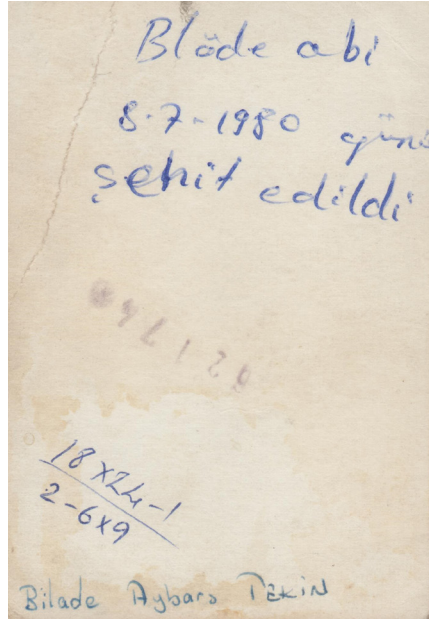 Blöde abi
8-7-1980 günü
şehit edildi
18x24-1
2-6x9
Bilade Aybars TEKİN